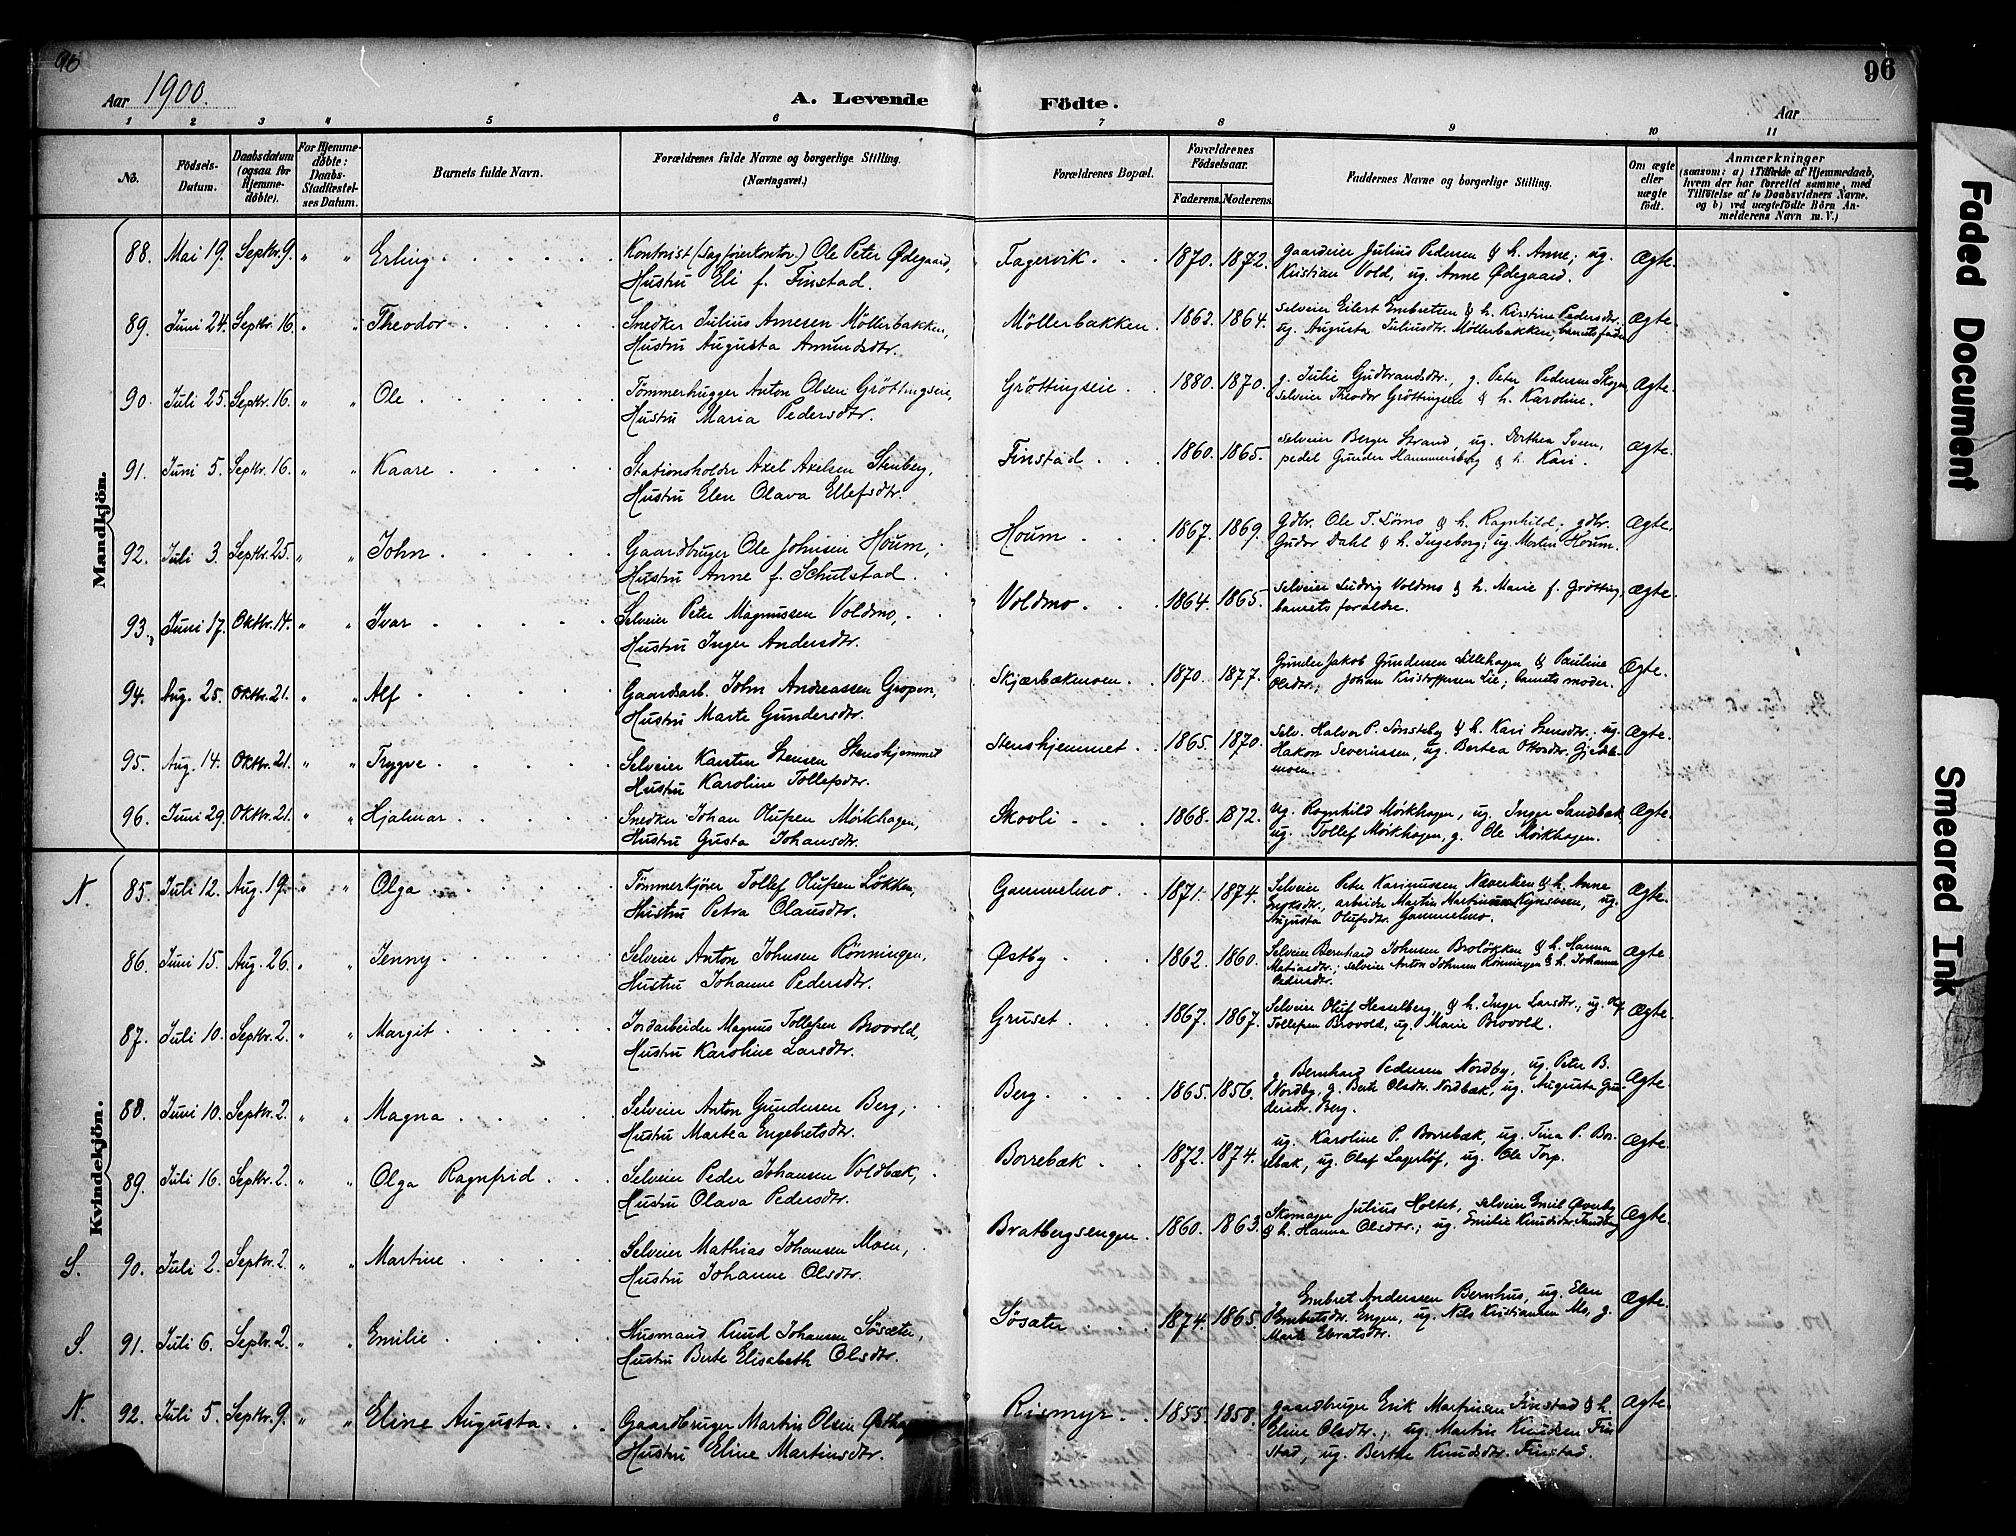 96
96
Aar 1900.
A. Levende Födte.
Aar
1 2 3 4 5 6 7 8 9 10 11
No.
Födsels-Datum.
Daabsdatum (ogsaa for Hjemmedöbte).
For Hjemmedøbte: Daabs-Stadfæstelses Datum.
Barnets fulde Navn.
Forældrenes fulde Navne og borgerlige Stilling. (Næringsvei.)
Forældrenes Bopæl.
Forældrenes Födselsaar.
Faderens. Moderens.
Faddernes Navne og borgerlige Stilling.
Om ægte eller uægte födt.
Anmærkninger
(saasom: a) i Tilfælde af Hjemmedaab,
hvem der har forrettet samme, med
Tilföielse af to Daabsvidners Navne.
og b) ved uægtefödte Börn Anmelderens Navn m. V.)
Mandkjön.
88. Mai 19. Septbr. 9. " " Erling Kontorist (Sagførerkontor.) Ole Peter Ødegaard, Fagervik. 1870. 1872. gaardeier Julius Pedersen & h. Anne; ug. Ægte.
Hustru Eli f. Finstad. Kristian Vold, ug. Anne Ødegaard.
89. Juni 24. Septbr. 16. " " Theodor Snedker Julius Arnesen Möllerbakken, Möllerbakken. 1862. 1864. Selveier Eilert Embretsen & h. Kirstine Pedersdtr. Ægte.
Hustru Augusta Amundsdtr. ug. Augusta Juliusdtr. Møllerbakken, barnets fader
90. Juli 25. Septbr. 16. " " Ole Tömmerhugger Anton Olsen Gröttingseie, Gröttingseie. 1880. 1870. g. Julie Gudbrandsdtr., g. Peter Pedersen Skogen, Ægte.
Hustru Maria Pedersdtr. Selveier Theodor Gröttingseie & h. Karoline.
91. Juni 5. Septbr. 16. " " Kaare Stationsholder Axel Axelsen Stenberg, Finstad 1860. 1865. Selveier Berger Strand, ug. Dorthea Sveen, Ægte.
Hustru Elen Olava Ellefsdtr. pedel Gunder Hammersberg & h. Kari.
92. Juli 3. Septbr. 25. " " John Gaardbruger Ole Johnsen Houm, Houm 1867. 1869. Gdbr. Ole T. Lömo & h. Ragnhild; gdbr. Ægte.
Hustru Anne f. Schulstad. Gudor Dahl & h. Ingeborg; ug. Morten Houm.
93. Juni 17. Oktbr. 14. " " Ivar Selveier Peter Magnussen Voldmo, Voldmo 1864. 1865. Selveier Ludvig Voldmo & h. Marie f. Grötting, Ægte.
Hustru Inger Andersdtr. barnets forældre.
94. Aug. 25. Oktbr. 21. " " Alf Gaardsarb. John Andreassen Gropen, Skjærbækmoen. 1870. 1877. Gunder Jakob Gundersen Lillehagen & Pauline Ægte.
Hustru Marte Gundersdtr. Olsdtr.; Johan Kristoffersen Lie; barnets moder.
95. Aug. 14. Oktbr. 21. " " Trygve Selveier Karsten Stensen Stenshjemmet Stenshjemmet 1865. 1870. Selv. Halvor P. Sønsteby & h. Kari Stensdtr.; ug. Ægte.
Hustru Karoline Tollefsdtr. Hakon Severinssen, ug. Bertea Ottersdtr.
moen.
96. Juni 29. Oktbr. 21. " " Hjalmar Snedker Johan Olufsen Mörkhagen, Skovli 1868. 1872. ug. Ragnhild Mørkhagen, ug. Inger Sandbak Ægte.
Hustru Gusta Johansdtr. ug. Tollef Mørkhagen, g. Ole Mørkhagen.
Kvindekjön.
N. 85. Juli 12. Aug. 19. " " Olga Tömmerkjörer Tollef Olufsen Løkken, Gammelmo 1871. 1874. Selveier Peter Karinussen Næverlien & h. Anne Ægte.
Hustru Petra Olausdtr. Eriksdtr., arbeider Martin Martinussen, ug.
Augusta Olufsdtr. Gammelmo.
86. Juni 15. Aug. 26. " " Jenny Selveier Anton Johnsen Rönningen, Østby 1862. 1860. Selveier Bernhard Johnsen Broløkken & h. Hanna Ægte.
Hustru Johanne Pedersdtr. Matiasdtr.; selveier Anton Johnsen Rönningen & h. Johanne
Pedersdtr.
87. Juli 10. Septbr. 2. " " Margit Jordarbeider Magnus Tollefsen Brovold, Gruset 1867. 1867. Selveier Oluf Hesselberg, & h. Inger Larsdtr.; ug. Olaf Ægte.
Hustru Karoline Larsdtr. Tollefsen Brovold, ug. Marie Brovold.
88. Juni 10. Septbr. 2. " " Magna Selveier Anton Gundersen Berg, Berg 1865. 1856. g. Bernhard Pedersen Nordby, ug. Peter B. Ægte.
Hustru Martea Engebretsdtr. Nordby, g. Berte Olsdtr. Nordbæk, ug. Augusta Gundersdtr. Berg.
89. Juli 16. Septbr. 2. " " Olga Ragnfrid Selveier Peder Johansen Voldbæk, Borrebæk 1872. 1874. ug. Karoline P. Borrebæk, ug. Tina P. Bor- Ægte.
Hustru Olava Pedersdtr. rebæk, ug. Olaf Lagerlöf, ug. Ole Torp.
S. 90. Juli 2. Septbr. 2. " " Martine Selveier Mathias Johansen Moen, Bratbergsengen 1860. 1863. Skomager Julius Holtet, selveier Emil Qverby Ægte.
Hustru Johanne Olsdtr. & h. Hanna Olsdtr.; ug. Emilie Knudsdtr. Tandberg
S. 91. Juli 6. Septbr. 2. " " Emilie Husmand Knud Johansen Søsæter, Søsæter 1874. 1865. g. Embret Andersen Bernhus, ug. Elen Ægte.
Hustru Berte Elisabeth Olsdtr. Embretsdtr. Engen, ug. Nils Kristiansen Mo, g.
Marte Ebratsdtr.
N. 92. Juli 5. Septbr. 9. " " Eline Augusta Gaardbruger Martin Olsen Østhag Rismyr 1855. 1858. gaardbruger Erik Martinsen Finstad & h. Ægte.
Hustru Eline Martinsdtr. Eline Olsdtr., ug. Martin Knudsen Fin-
stad, ug. Berthe Knudsdtr. Finstad.
Faded Document
Smeared Ink